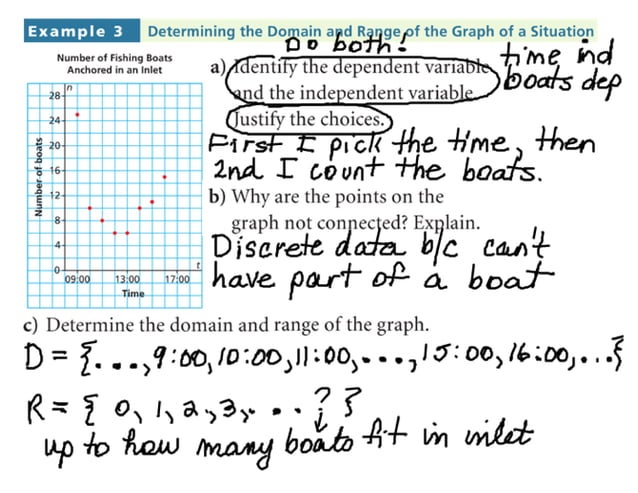 Example 3 Determining the Domain and Range of the Graph of a Situation
Do both!
Number of Fishing Boats
Anchored in an Inlet
a) Identify the dependent variable
and the independent variable.
Justify the choices.
time ind
boats dep
First I pick the time, then
2nd I count the boats.
b) Why are the points on the
graph not connected? Explain.
Discrete data b/c can't
have part of a boat
n
28
24
20
16
12
8
4
0
Number of boats
09:00 13:00 17:00
t
Time
c) Determine the domain and range of the graph.
D = {..., 9:00, 10:00, 11:00, ..., 15:00, 16:00, ...}
R = { 0, 1, 2, 3, ...? }
up to how many boats fit in inlet